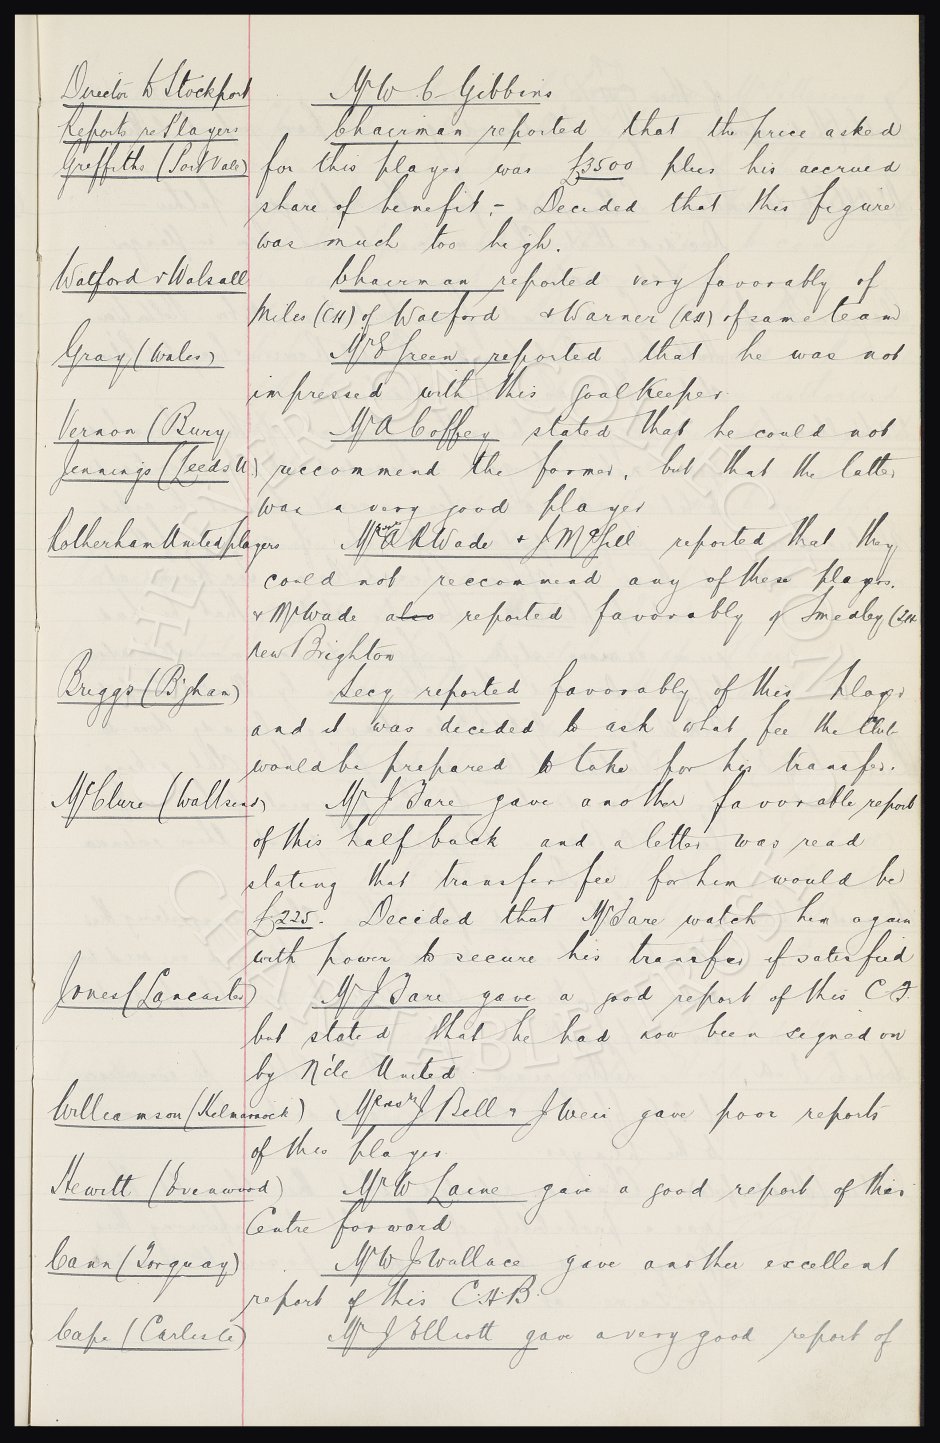 Director to Stockport Mr W. C. Gibbins
Reports re Players Chairman reported that the price asked
Griffiths (Port Vale) for this player was £3500 plus his accrued
share of benefit. - Decided that this figure
was much too high.
Watford v Walsall Chairman reported very favorably of
Miles (CH) of Watford & Warner (RH) of same team
Gray (Wales) Mr E Green reported that he was not
impressed with this goalkeeper
Vernon (Bury Mr A Coffey stated that he could not
Jennings (Leeds U) reccommend the former, but that the latter
was a very good player
Rotherham United players A R Wade & J McGill reported that they
could not reccommend any of these players.
& Mr Wade also reported favorably of Smedley (IL
New Brighton
Briggs (B'gham) Secy reported favorably of this player
and it was decided to ask what fee the Club
would be prepared to take for his transfer.
McClure (Wallsend) Mr J Tare gave another favorable report
of this half back and a letter was read
stating that transfer fee for him would be
£225. Decided that Mr Tare watch him again
with power to secure his transfer if satisfied
Jones (Lancaster) Mr J Tare gave a good report of this C F.
but stated that he had now been signed on
by N'cle United
Williamson (Kilmarnock) Messrs J Bell & J Weir gave poor reports
of this player.
Hewitt (Evenwood) Mr W Laine gave a good report of this
Centre forward
Cann (Torquay) Mr W J Wallace gave another excellent
report of this C.H.B.
Cape (Carlisle) Mr J Elliott gave a very good report of
THE EVERTON COLLECTION
CHARITABLE TRUST